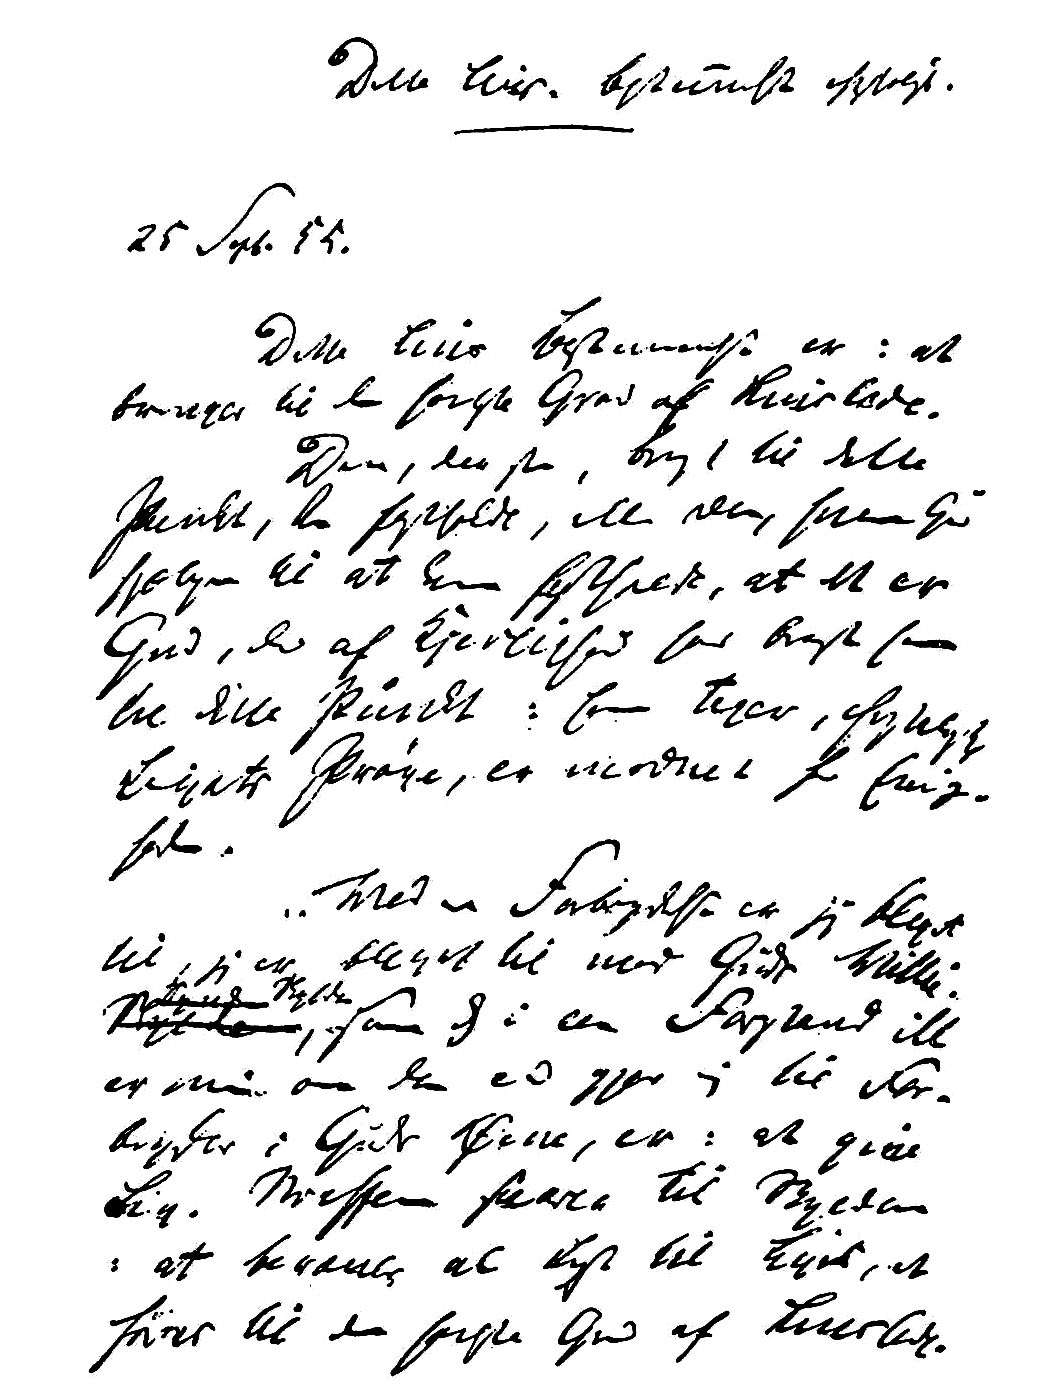 Dette Livs Bestemmelse christeligt.
25 Sept. 55.
Dette Livs Bestemmelse er: at
bringes til den høieste Grad af Livslede.
Den, der saa, bragt til dette
Punkt, kan fastholde, eller den, hvem Gud
hjælper til at kunne fastholde, at det er
Gud, der af Kjerlighed har bragt ham
til dette Punkt: han tager, christeligt
Livets Prøve, er modnet for Evig-
heden.
Ved en Forbrydelse er jeg blevet
til, jeg er blevet til mod Guds Villie.
Skylden, som dog i een Forstand ikke
er min om den end gjør mig til For-
bryder i Guds Øine, er: at give
Liv. Straffen svarer til Skylden
: at berøves al Lyst til Livet, at
føres til den høieste Grad af Livslede.